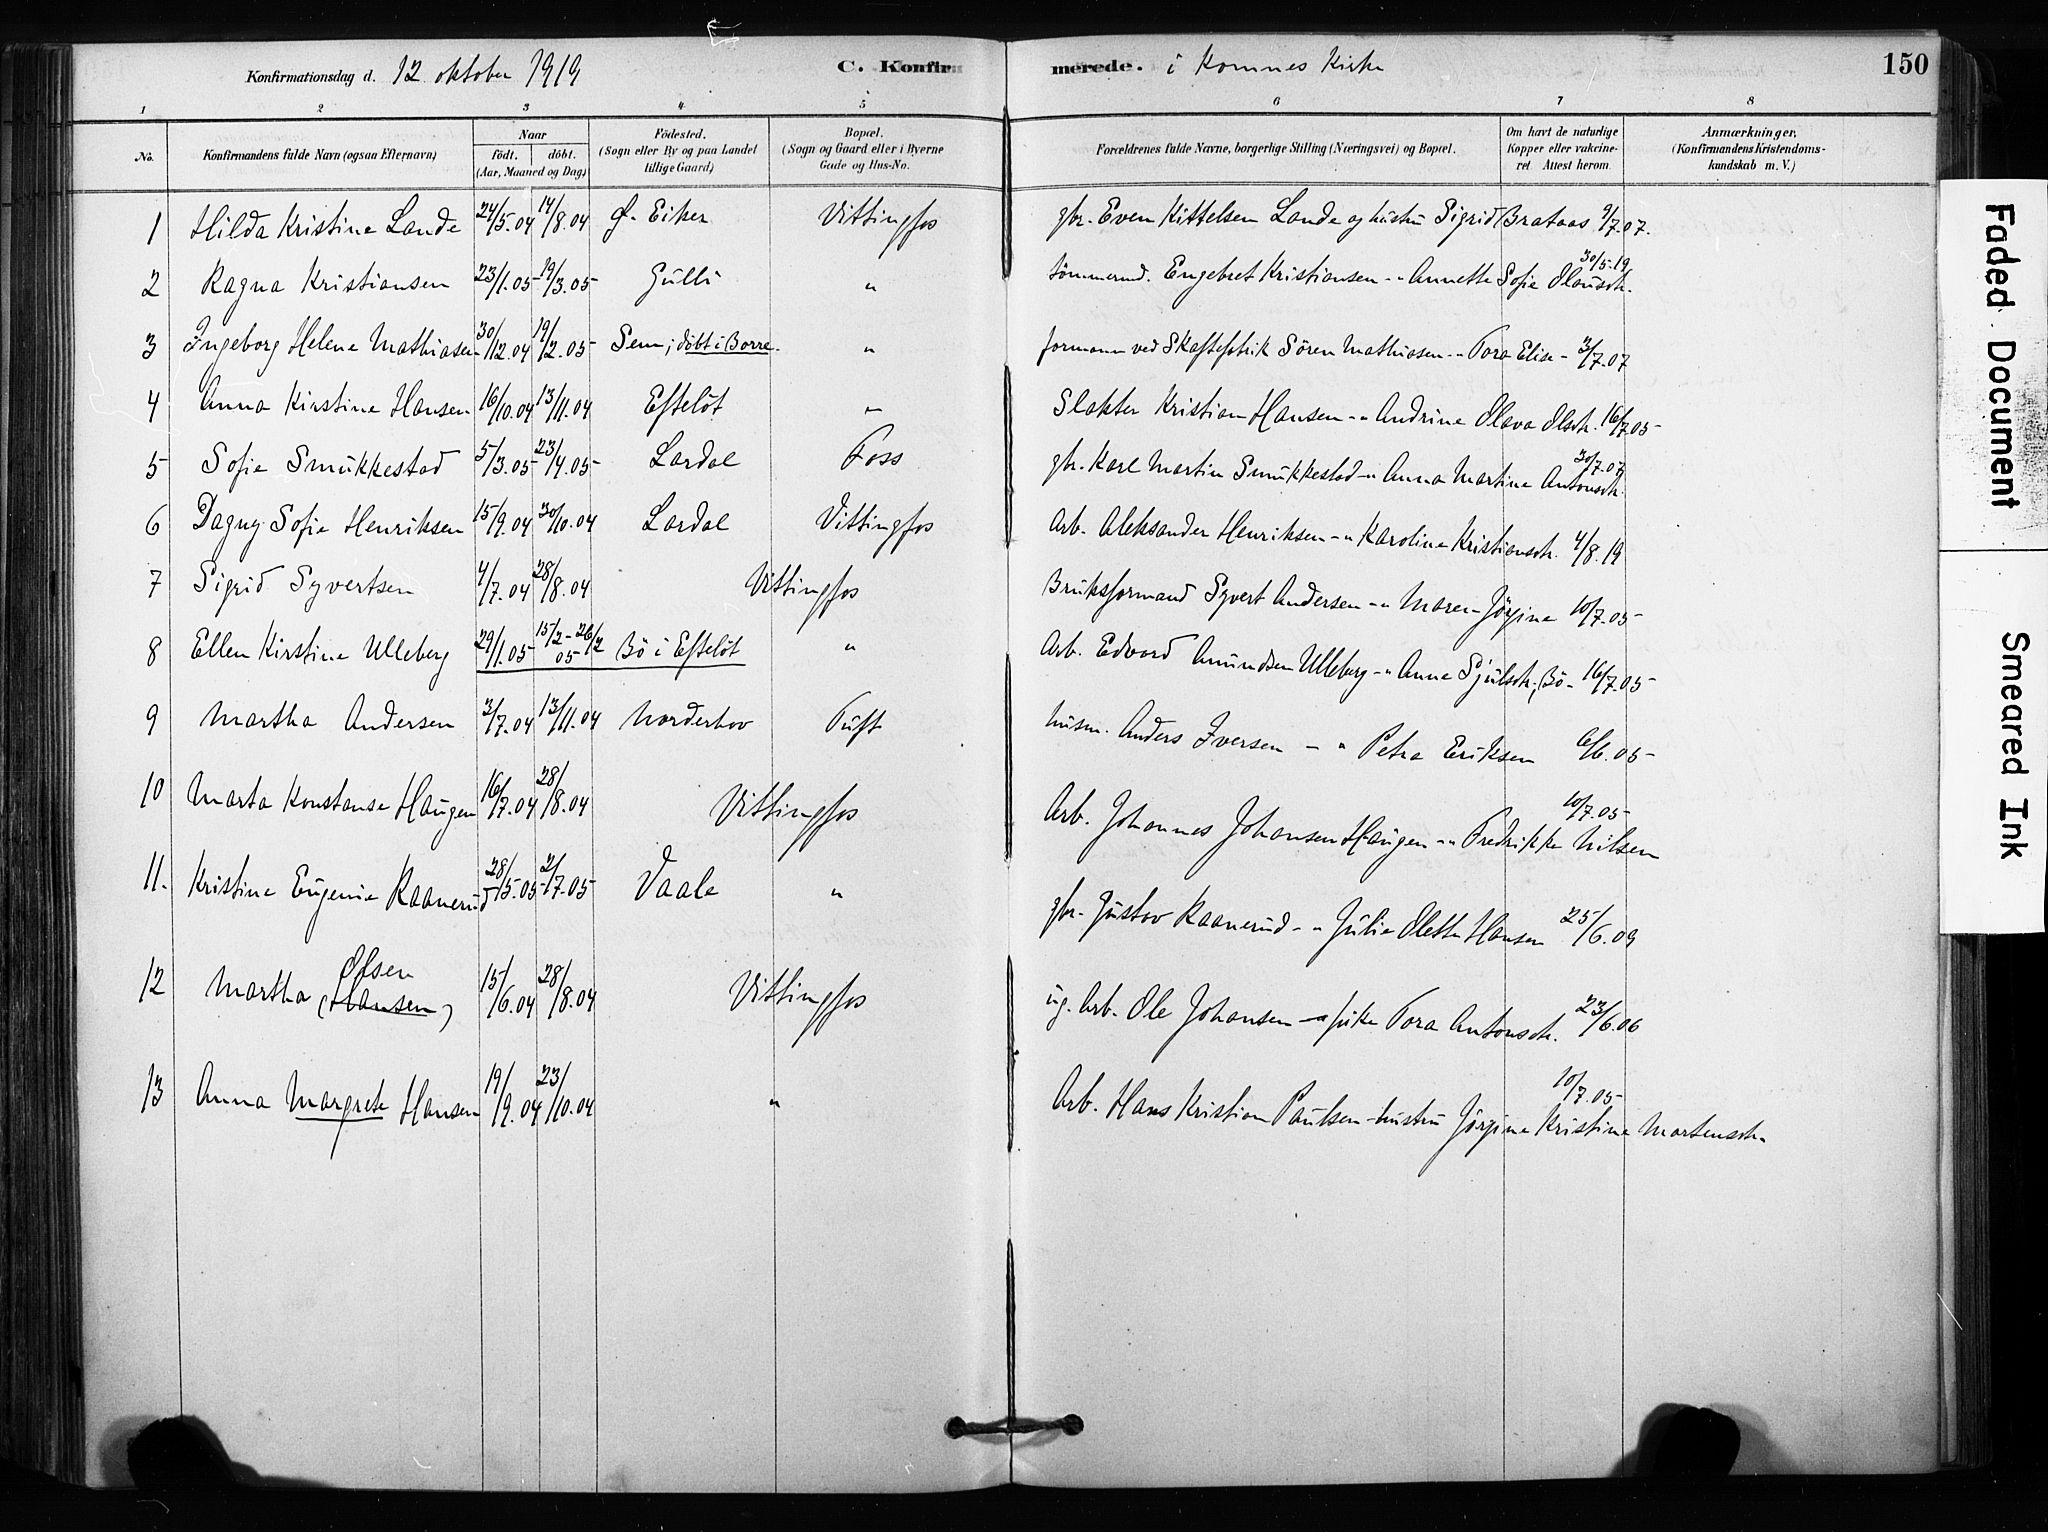 Konfirmationsdag d. 12 oktober 1919 C. Konfirmerede. i Komnes Kirke 150
1 2 3 4 5 6 7 8
No. Konfirmandens fulde Navn (ogsaa Efternavn) Naar födt. döbt. (Aar, Maaned og Dag) Födested. (Sogn eller By og paa Landet tillige Gaard) Bopæl. (Sogn og Gaard eller i Byerne Gade og Hus-No. Forældrenes fulde Navne, borgerlige Stilling (Næringsvei) og Bopæl. Om havt de naturlige Kopper eller vakcineret. Attest herom. Anmærkninger. (Konfirmandens Kristendomskundskab m. V.)
1 Hilda Kristine Lande 24/5.04 14/8.04 Ø. Eiker Vittingfos gbr. Even Kittelsen Lande og hustru Sigrid Brataas 9/7.07.
2 Ragna Kristiansen 23/1.05 19/3.05 Gulli " tömmermd. Engebret Kristiansen - " Annette Sofie Olausdtr. 30/5.19
3 Ingeborg Helene Mathiasen 30/12.04 19/2.05 Sem; döbt i Borre. " formann ved Skaftefabrik Sören Mathiasen - " Tora Elise - 3/7.07
4 Anna Kirstine Hansen 16/10.04 13/11.04 Efteløt " Slakter Kristian Hansen - " Andrine Olava Olsdtr. 16/7.05
5 Sofie Smukkestad 5/3.05 23/4.05 Lardal Foss gbr. Karl Martin Smukkestad - " Anna Martine Antonsdtr. 30/7.07
6 Dagny Sofie Henriksen 15/9.04 30/10.04 Lardal Vittingfos Arb. Aleksander Henriksen - " Karoline Kristiansdtr. 4/8.19
7 Sigrid Syvertsen 4/7.04 28/8.04 Vittingfos Bruksformand Syvert Andersen - " Maren Jörgine 10/7.05
8 Ellen Kirstine Ulleberg 29/1.05 15/2 - 26/2 05 Bö i Efteløt " Arb. Edvard Amundsen Ulleberg - " Anne Sjulsdtr., Bö - 16/7.05
9 Martha Andersen 3/7.04 13/11.04 Norderhov Tuft husm. Anders Iversen - " Petra Eriksen 6/6.05
10 Marta Konstanse Haugen 16/7.04 28/8.04 Vittingfos Arb. Johannes Johansen Haugen - " Fredrikke Nilsen 10/7.05
11. Kristine Eugenie Raanerud 28/5.05 2/7.05 Vaale " gbr. Gustav Raanerud - " Julie Olette Hansen 25/6.09
12 Martha Olsen (Hansen) 15/6.04 28/8.04 Vittingfos ug. Arb. Ole Johansen - pike Tora Antonsdtr. 23/6.06
13 Anna Margrete Hansen 19/9.04 23/10.04 " Arb. Hans Kristian Paulsen - hustru Jörgine Kristine Martensdtr. 10/7.05
Faded Document
Smeared Ink